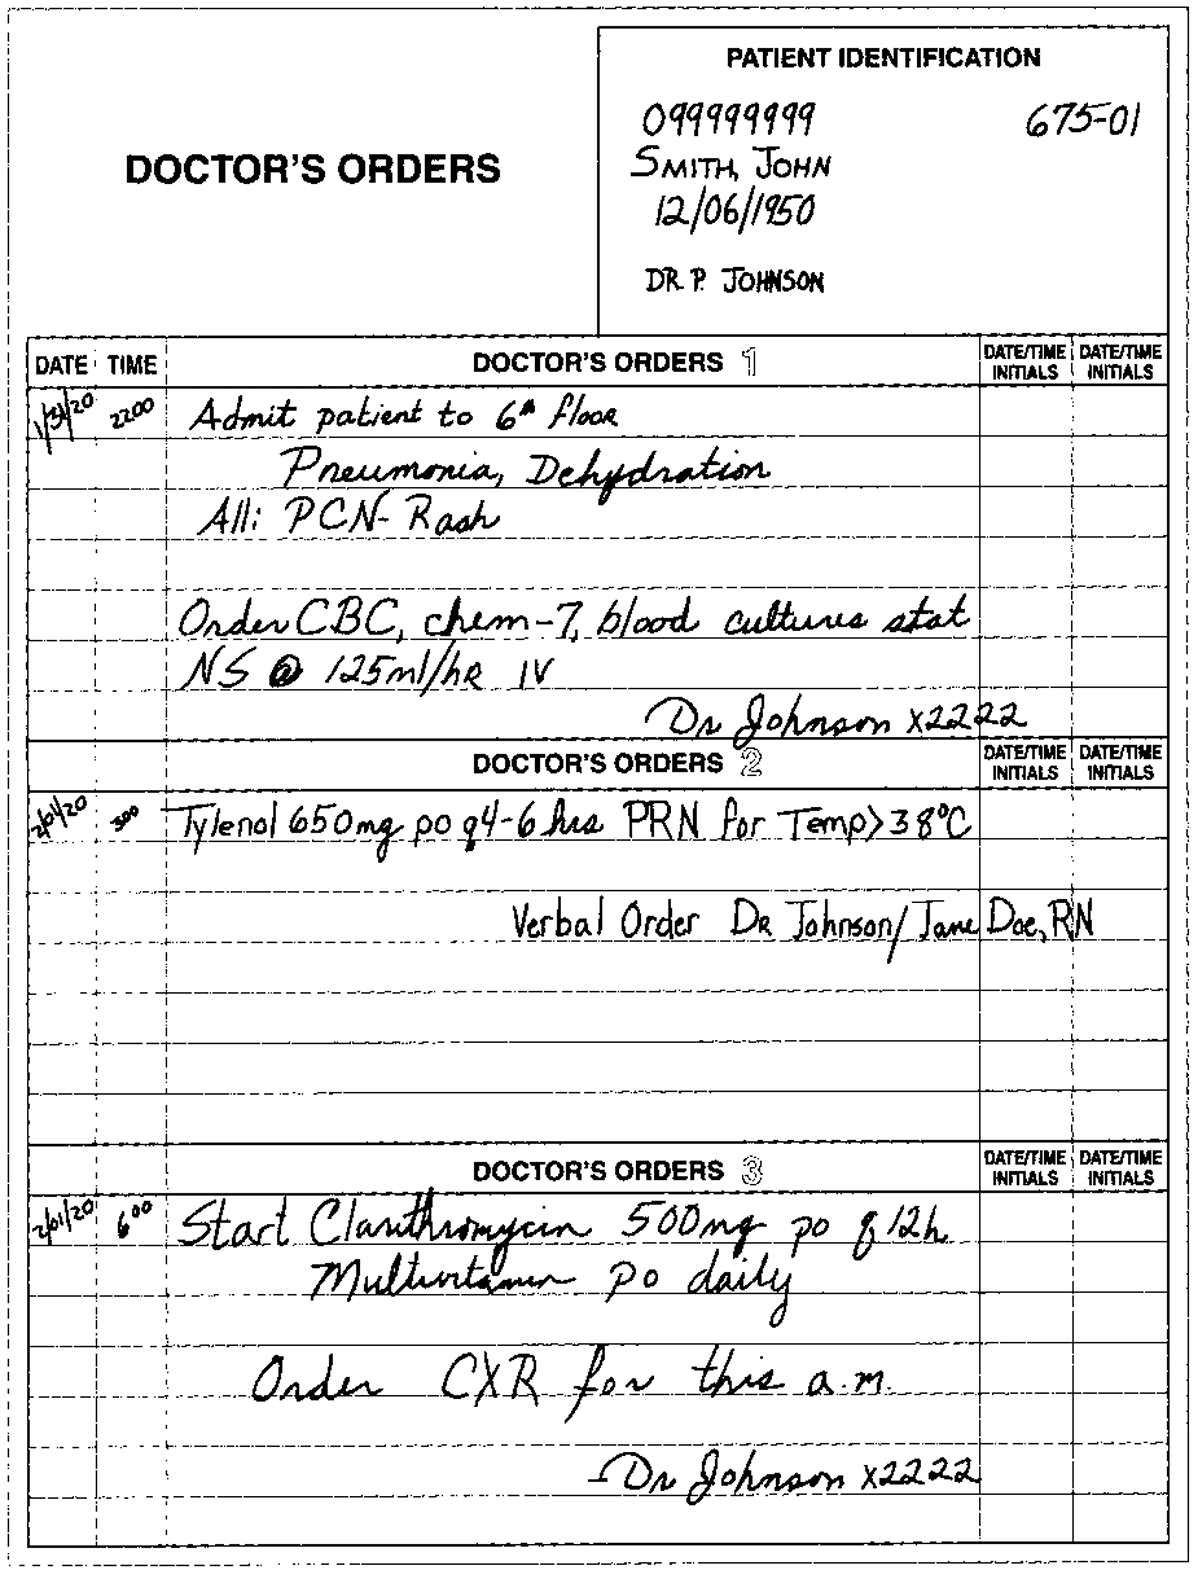 PATIENT IDENTIFICATION
099999999 675-01
SMITH, JOHN
12/06/1950
DR P. JOHNSON
DOCTOR'S ORDERS
DATE TIME DOCTOR'S ORDERS 1 DATE/TIME INITIALS DATE/TIME INITIALS
1/31/20 2200 Admit patient to 6th floor
Pneumonia, Dehydration
All: PCN- Rash
Order CBC, chem-7, blood cultures stat
NS @ 125ml/hr IV
Dr Johnson x2222
DOCTOR'S ORDERS 2 DATE/TIME INITIALS DATE/TIME INITIALS
2/01/20 300 Tylenol 650mg po q4-6 hrs PRN for Temp>38°C
Verbal Order DR Johnson/Jane Doe, RN
DOCTOR'S ORDERS 3 DATE/TIME INITIALS DATE/TIME INITIALS
2/01/20 600 Start Clarithromycin 500mg po q 12h
Multivitamin po daily
Order CXR for this a.m.
Dr Johnson x2222